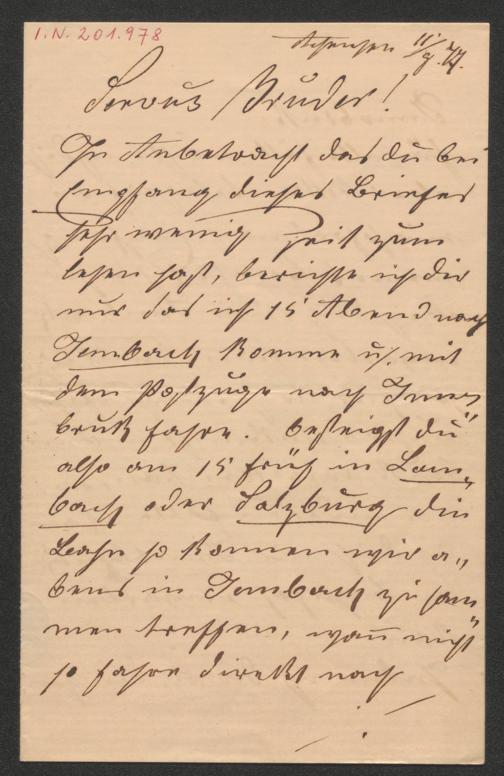 I.N. 201.978
Achensee 11/9 77.
Servus Bruder!
In Anbetracht das du bei
Empfang dieses Briefes
sehr wenig Zeit zum
lesen hast, berichte ich dir
nur das ich 15 Abend nach
Jembach komme u. mit
dem Postzuge nach Inns
bruk fahre. besteigst du
also am 15 früh in Lam„
bach oder Salzburg die
Bahn so können wir a„
bens in Jembach zusam
men treffen, wan̄ nicht
so fahre direkt nach